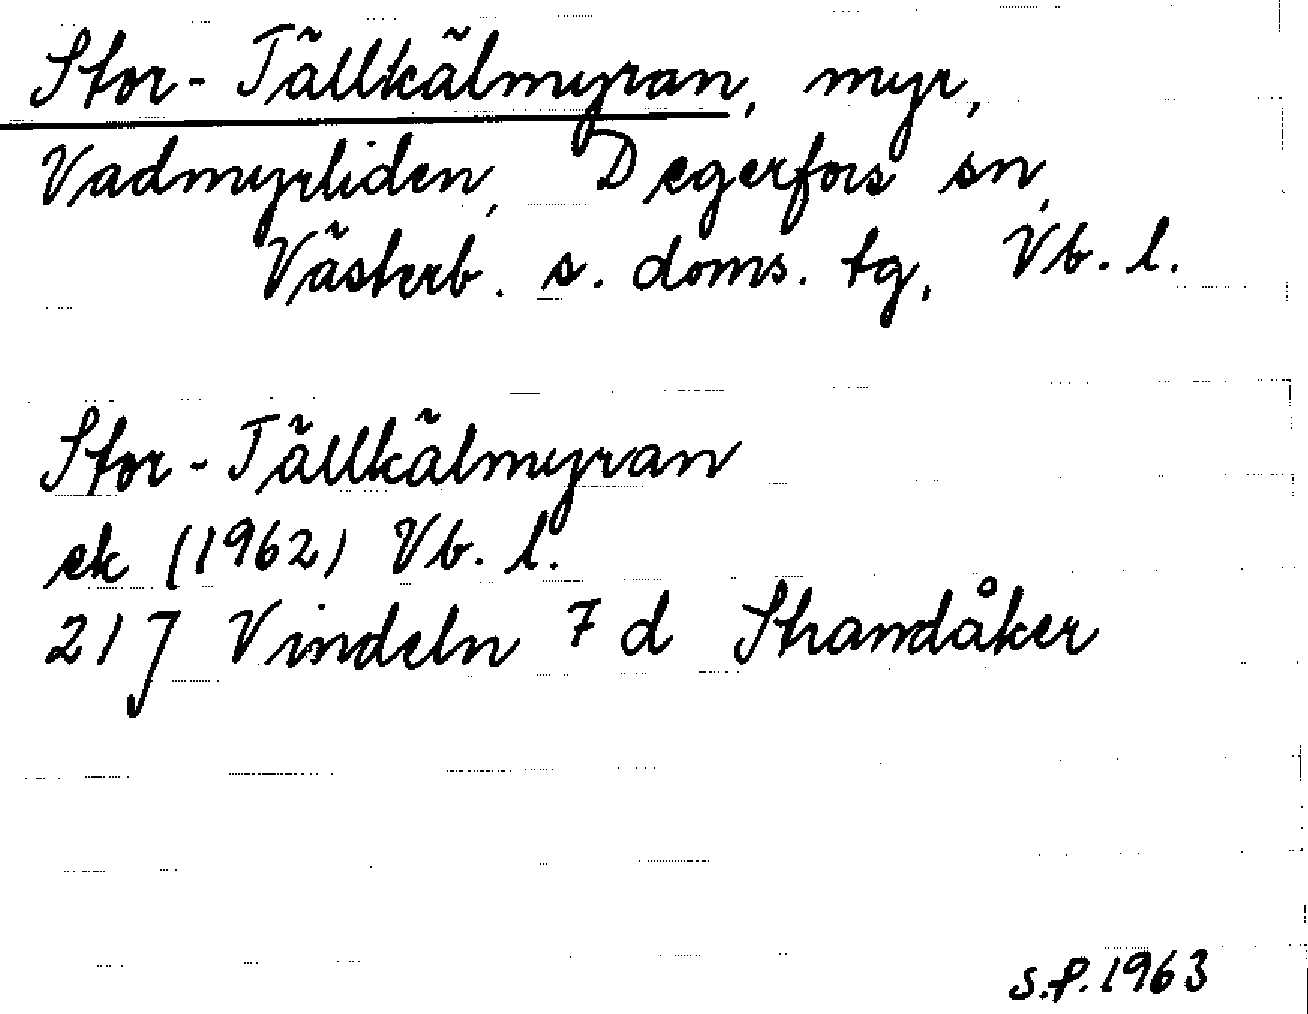 Stor-Tällkälmyran, myr,
Vadmyrliden, Degerfors sn,
Västerb. s. doms. tg, Vb. l.
Stor-Tällkälmyran
ek (1962) Vb. l.
21J Vindeln 7d Strandåker
S.P. 1963